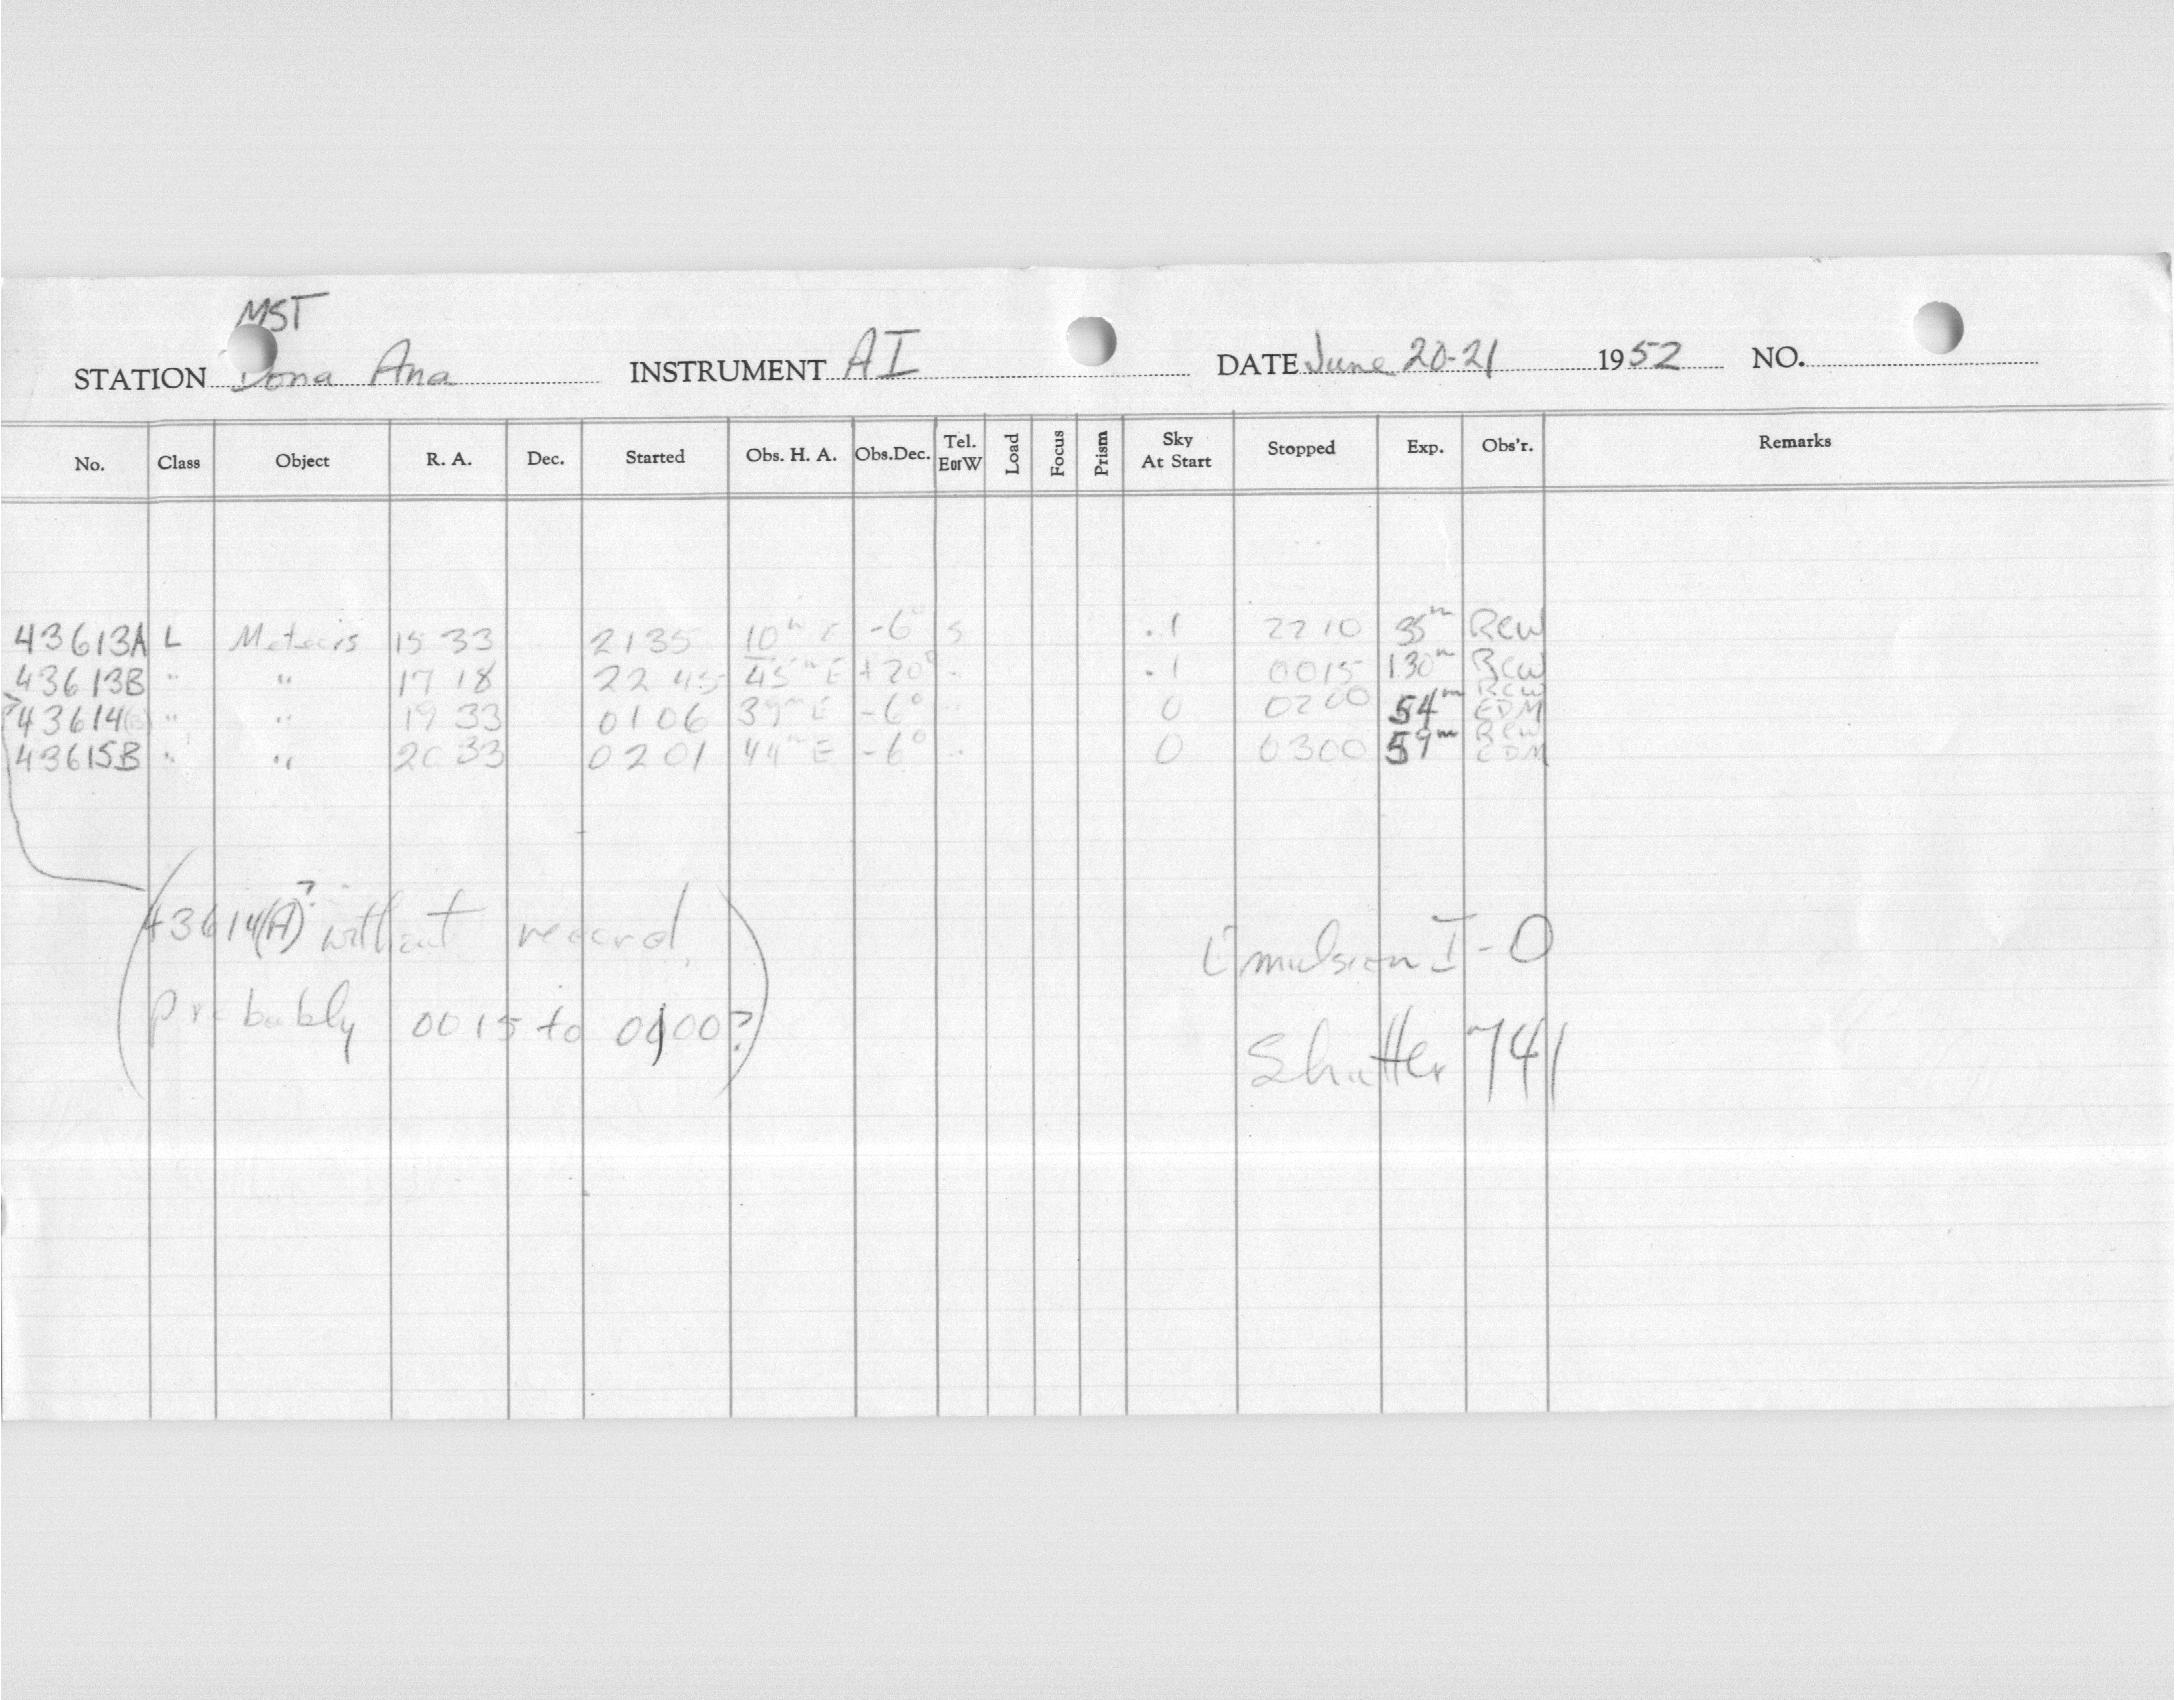 MST
STATION Dona Ana INSTRUMENT AI DATE June 20-21 1952 NO.
No. Class Object R. A. Dec. Started Obs. H. A. Obs.Dec. Tel. E or W Load Focus Prism Sky At Start Stopped Exp. Obs'r. Remarks
43613A L Meteors 15 33 2135 10m E -6° S .1 2210 35m RCW
43613B " " 17 18 22 45 45m E +20° " .1 0015 130m RCW
43614(B) " " 19 33 0106 39m E -6° " 0 0200 54m RCW EDM
43615B " " 20 33 0201 44m E -6° " 0 0300 59m RCW EDM
(43614(A)? without record,
Probably 0015 to 0100?)
Emulsion I-O
Shutter 741